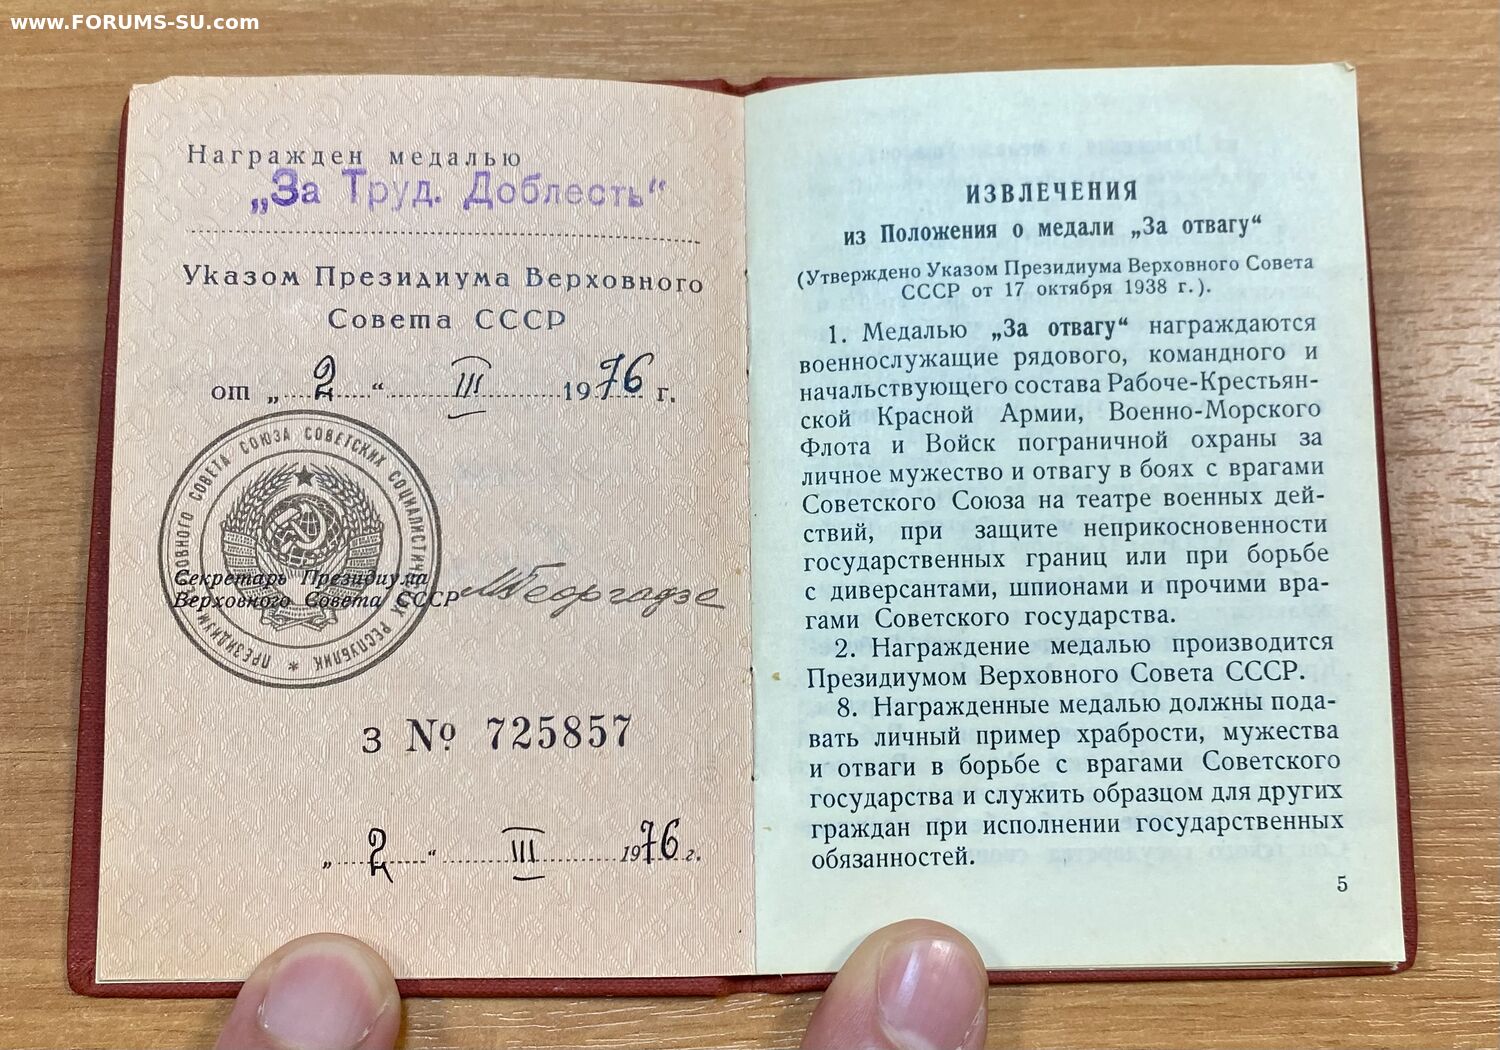 www.FORUMS-SU.com
Награжден медалью
„За Труд. Доблесть“
Указом Президиума Верховного
Совета СССР
от „ 2 “ III 1976 г.
ПРЕЗИДИУМ ВЕРХОВНОГО СОВЕТА СОЮЗА СОВЕТСКИХ СОЦИАЛИСТИЧЕСКИХ РЕСПУБЛИК *
Секретарь Президиума
Верховного Совета СССР МГеоргадзе
З № 725857
„ 2 “ III 1976 г.
ИЗВЛЕЧЕНИЯ
из Положения о медали „За отвагу“
(Утверждено Указом Президиума Верховного Совета
СССР от 17 октября 1938 г.).
1. Медалью „За отвагу“ награждаются
военнослужащие рядового, командного и
начальствующего состава Рабоче-Крестьян-
ской Красной Армии, Военно-Морского
Флота и Войск пограничной охраны за
личное мужество и отвагу в боях с врагами
Советского Союза на театре военных дей-
ствий, при защите неприкосновенности
государственных границ или при борьбе
с диверсантами, шпионами и прочими вра-
гами Советского государства.
2. Награждение медалью производится
Президиумом Верховного Совета СССР.
8. Награжденные медалью должны пода-
вать личный пример храбрости, мужества
и отваги в борьбе с врагами Советского
государства и служить образцом для других
граждан при исполнении государственных
обязанностей.
5